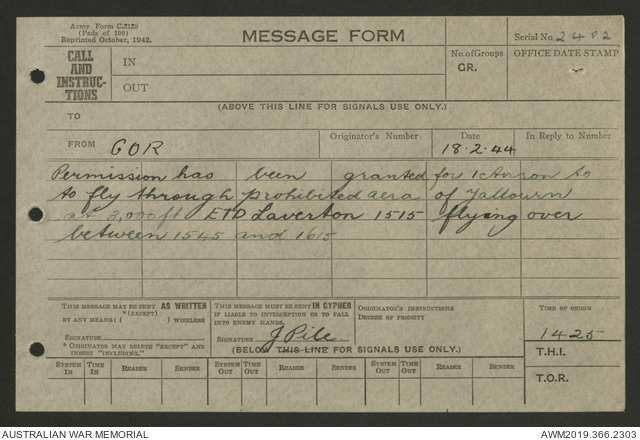 Army Form C.2128
(Pads of 100)
Reprinted October, 1942.
MESSAGE FORM
Serial No. 2402
CALL
AND
INSTRUC-
TIONS
IN
OUT
No. of Groups
GR.
OFFICE DATE STAMP
(ABOVE THIS LINE FOR SIGNALS USE ONLY.)
TO
FROM GOR
Originator's Number
Date
18.2.44
In Reply to Number
Permission has been granted for 1 Anson to
to fly through prohibited aera of Yallourn
at 3,000ft ETD Laverton 1515 flying over
between 1545 and 1615
THIS MESSAGE MAY BE SENT AS WRITTEN
*(EXCEPT)
BY ANY MEANS: ( ) WIRELESS
SIGNATURE
* ORIGINATOR MAY DELETE "EXCEPT" AND
INSERT "INCLUDING."
THIS MESSAGE MUST BE SENT IN CYPHER
IF LIABLE TO INTERCEPTION OR TO FALL
INTO ENEMY HANDS.
SIGNATURE J Pile
ORIGINATOR'S INSTRUCTIONS
DEGREE OF PRIORITY
TIME OF ORIGIN
1425
(BELOW THIS LINE FOR SIGNALS USE ONLY.)
T.H.I.
T.O.R.
SYSTEM IN TIME IN READER SENDER SYSTEM OUT TIME OUT READER SENDER SYSTEM OUT TIME OUT READER SENDER
AUSTRALIAN WAR MEMORIAL
AWM2019.366.2303